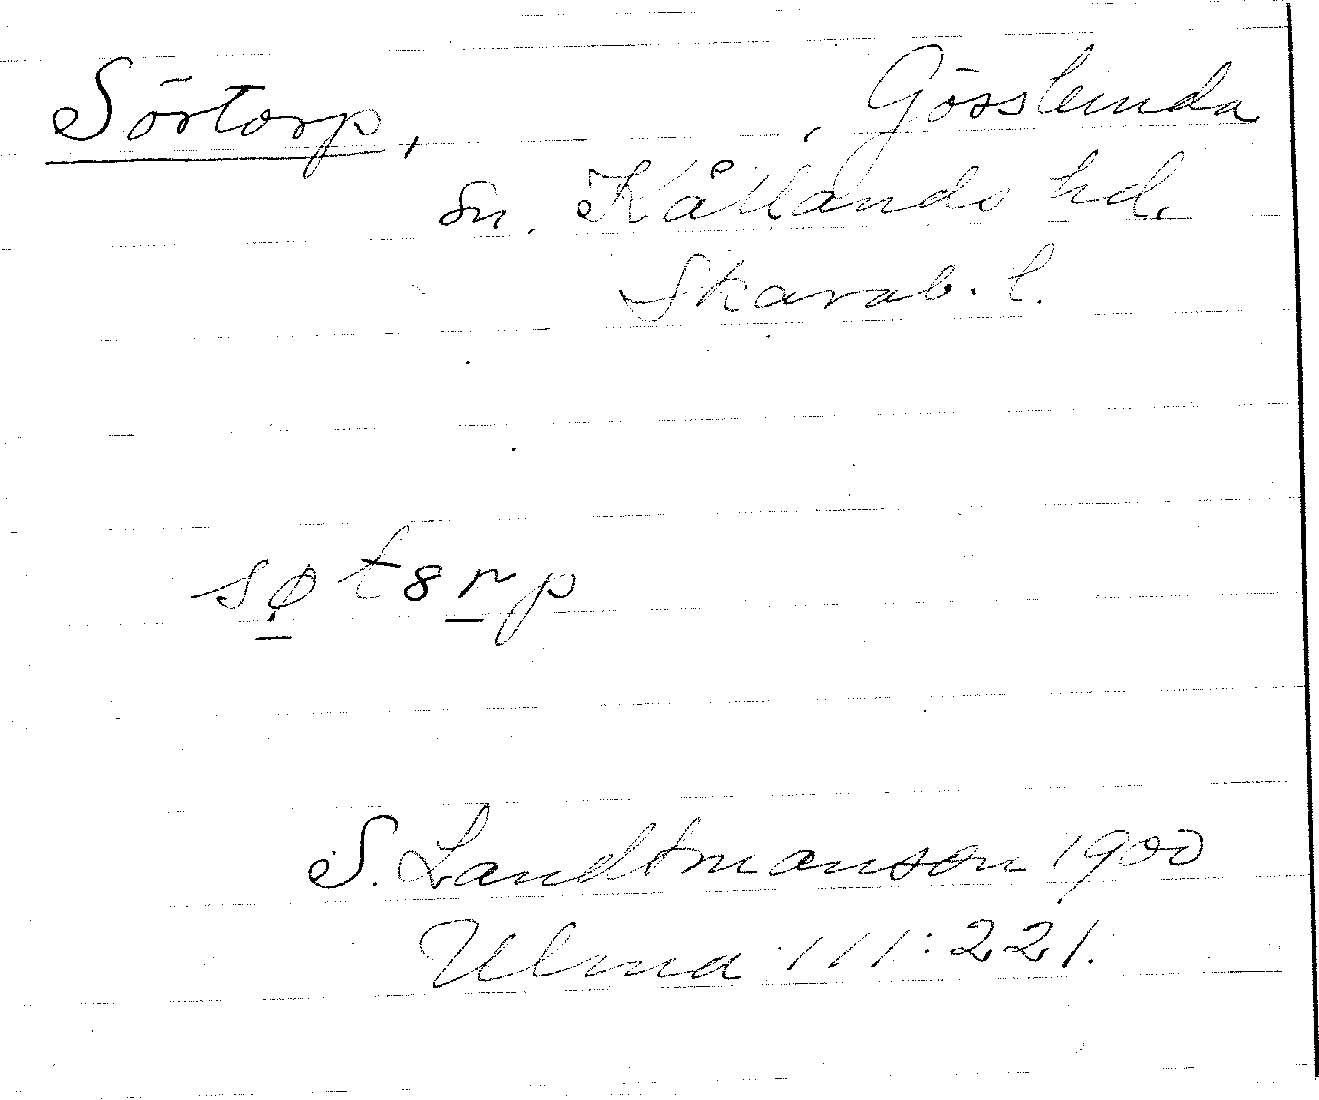 Sörtorp, , Gösslunda
sn. Kållands hd.
Skarab. l.
sø̠t8r̠p
S. Landtmanson 1900
Ulma 111:221.